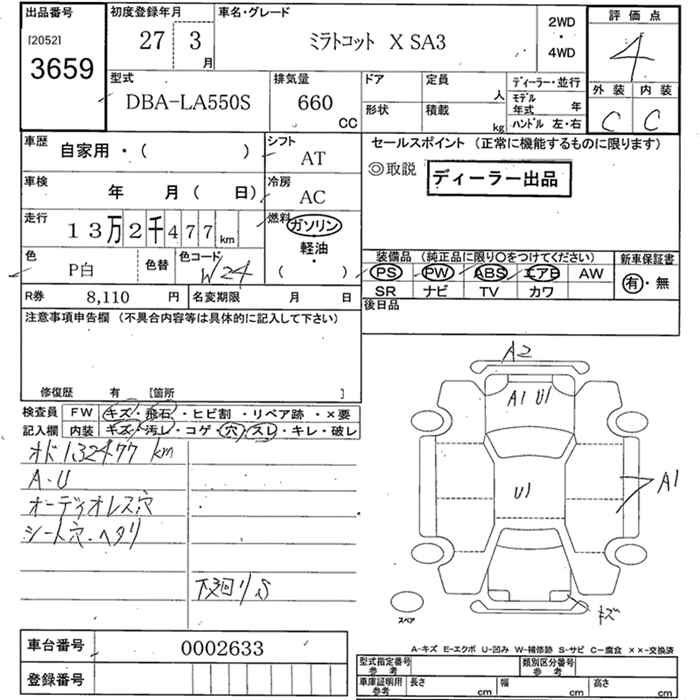 出品番号 初度登録年月 車名・グレード 2WD ・ 4WD 評価点
[2052] 3659
27 3 月 ミラトコット X SA3 4
型式 排気量 ドア 定員 人 ディーラー・並行 外装 内装
DBA-LA550S 660 CC 形状 積載 kg モデル年式 年 ハンドル 左・右 C C
車歴 自家用・( ) シフト AT セールスポイント (正常に機能するものに限ります)
◎取説 ディーラー出品
車検 年 月( 日) 冷房 AC
走行 13万2千477km 燃料 ガソリン 軽油・( )
色 P白 色替 色コード W24
装備品 (純正品に限り○をつけてください) 新車保証書
PS PW ABS エアB AW 有・無
SR ナビ TV カワ
R券 8,110 円 名変期限 月 日 後日品
注意事項申告欄 (不具合内容等は具体的に記入して下さい)
修復歴 有 [箇所 ]
検査員 FW キズ・飛石・ヒビ割・リペア跡・×要
記入欄 内装 キズ・汚レ・コゲ・穴・スレ・キレ・破レ
オド132477km
A・U
オーディオレス穴
シート穴・ヘタリ
下廻りS
A2
A1 U1
U1
A1
キズ
スペア
車台番号 0002633
登録番号
A-キズ E-エクボ U-凹み W-補修跡 S-サビ C-腐食 ××-交換済
型式指定番号 参考 類別区分番号 参考
車庫証明用 参考 長さ cm 幅 cm 高さ cm